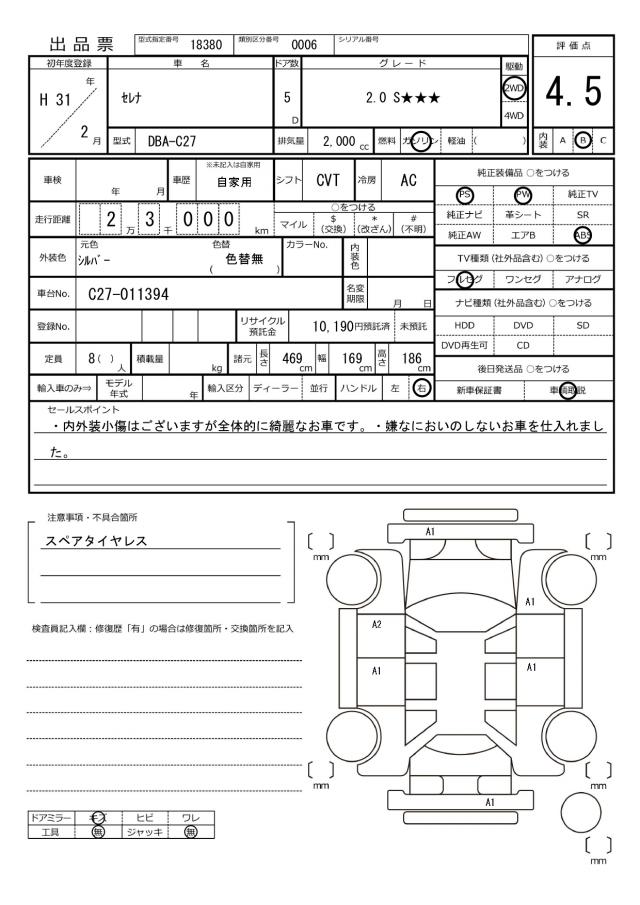 出品票 型式指定番号 18380 類別区分番号 0006 シリアル番号
評価点
4.5
内装 A B C
初年度登録 車名 ドア数 グレード 駆動
H 31 年 2 月 セレナ 5 D 2.0 S★★★ 2WD
4WD
型式 DBA-C27 排気量 2,000 cc 燃料 ガソリン 軽油 ( )
車検 年 月 車歴 ※未記入は自家用 自家用 シフト CVT 冷房 AC
走行距離 2 万 3 千 0 0 0 km
○をつける
マイル $ (交換) * (改ざん) # (不明)
外装色 元色 シルバー 色替 ( 色替無 ) カラーNo. 内装色
車台No. C27-011394 名変期限 月 日
登録No. リサイクル預託金 10,190円預託済 未預託
定員 8( )人 積載量 kg 諸元 長さ 469cm 幅 169cm 高さ 186cm
輸入車のみ⇒ モデル年式 年 輸入区分 ディーラー 並行 ハンドル 左 右
純正装備品 ○をつける
PS PW 純正TV
純正ナビ 革シート SR
純正AW エアB ABS
TV種類 (社外品含む) ○をつける
フルセグ ワンセグ アナログ
ナビ種類 (社外品含む) ○をつける
HDD DVD SD
DVD再生可 CD
後日発送品 ○をつける
新車保証書 車輌取説
セールスポイント
・内外装小傷はございますが全体的に綺麗なお車です。・嫌なにおいのしないお車を仕入れまし
た。
注意事項・不具合箇所
スペアタイヤレス
検査員記入欄:修復歴「有」の場合は修復箇所・交換箇所を記入
ドアミラー キズ ヒビ ワレ
工具 無 ジャッキ 無
A1
mm
mm
A1
A2
A1
A1
mm
mm
A1
mm